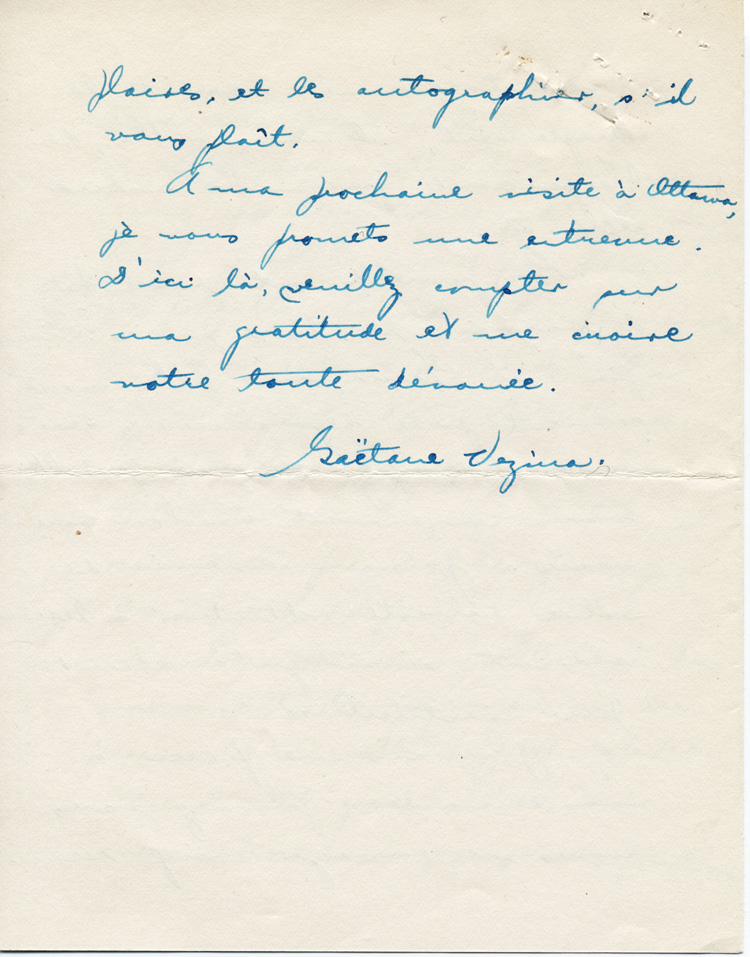 plaires, et les autographier, s'il
vous plaît.
A ma prochaine visite à Ottawa,
je vous promets une entrevue.
D'ici là, veuillez compter sur
ma gratitude et me croire
votre toute dévouée.
Gaëtane Vezina.